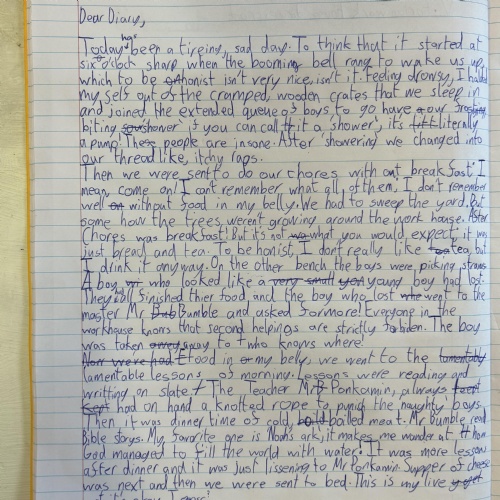 Dear Diary,
Today has been a tireing, sad day. To think that it started at
six o'clock sharp when the booming bell rang to wake us up,
which to be honist isn't very nice, isn't it. Feeling drowsy, I haled
my self out of the cramped, wooden crates that we sleep in
and joined the extended queue of boys, to go have our
biting shower if you can call it a shower, it's literally
a pump! These people are insane. After showering we changed into
our thread like, itchy rags.
Then we were sent to do our chores with out breakfast! I
mean come on! I can't remember what all of them, I don't remember
well without food in my belly. We had to sweep the yard. But
some how the trees weren't growing around the work house. After
Chores was breakfast! But it's not what you would expect; it was
just bread and tea. To be honist, I don't really like tea but
I drink it anyway. On the other bench the boys were picking straws
A boy who looked like a very small young boy had lost.
They all finished thier food and the boy who lost went to the
master Mr Bumble and asked for more! Everyone in the
workhouse knows that second helpings are strictly forbiden. The boy
was taken away to who knows where!
Food in my belly, we went to the
lamentable lessons of morning. Lessons were reading and
writting on slate. The Teacher Mr Ponkamin, always
had on hand a knotted rope to punish the naughty boys.
Then it was dinner time of cold, boiled meat. Mr Bumble read
Bible storys. My favorite one is Noahs ark, it makes me wunder at how
God managed to fill the world with water. It was more lessons
after dinner and it was just lissening to Mr Ponkamin. Supper of cheese
was next and then we were sent to bed. This is my live